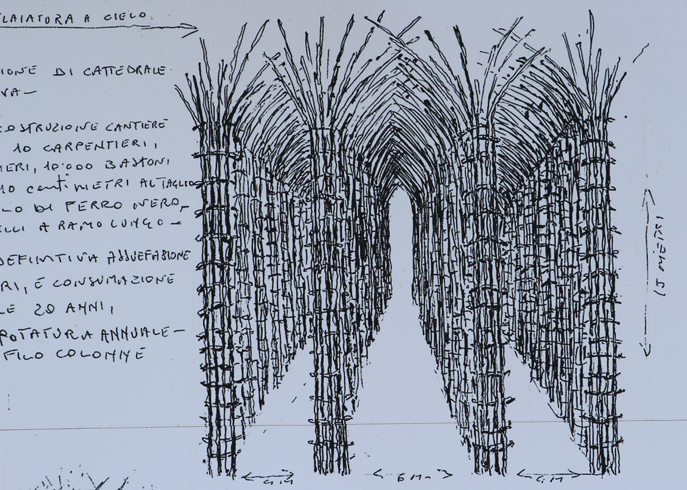 LAIATORA A CIELO
IONE DI CATTEDRALE
VA—
COSTRUZIONE CANTIERE
10 CARPENTIERI,
IERI, 10.000 BASTONI
10 centimetri AL TAGLIO
LO DI FERRO NERO,
ELLI A RAMO LUNGO—
DEFINITIVA ASSUEFAZIONE
RI, E CONSUMAZIONE
LE 20 ANNI,
POTATURA ANNUALE—
FILO COLONNE
15 METRI
4 M
6 M
4 M